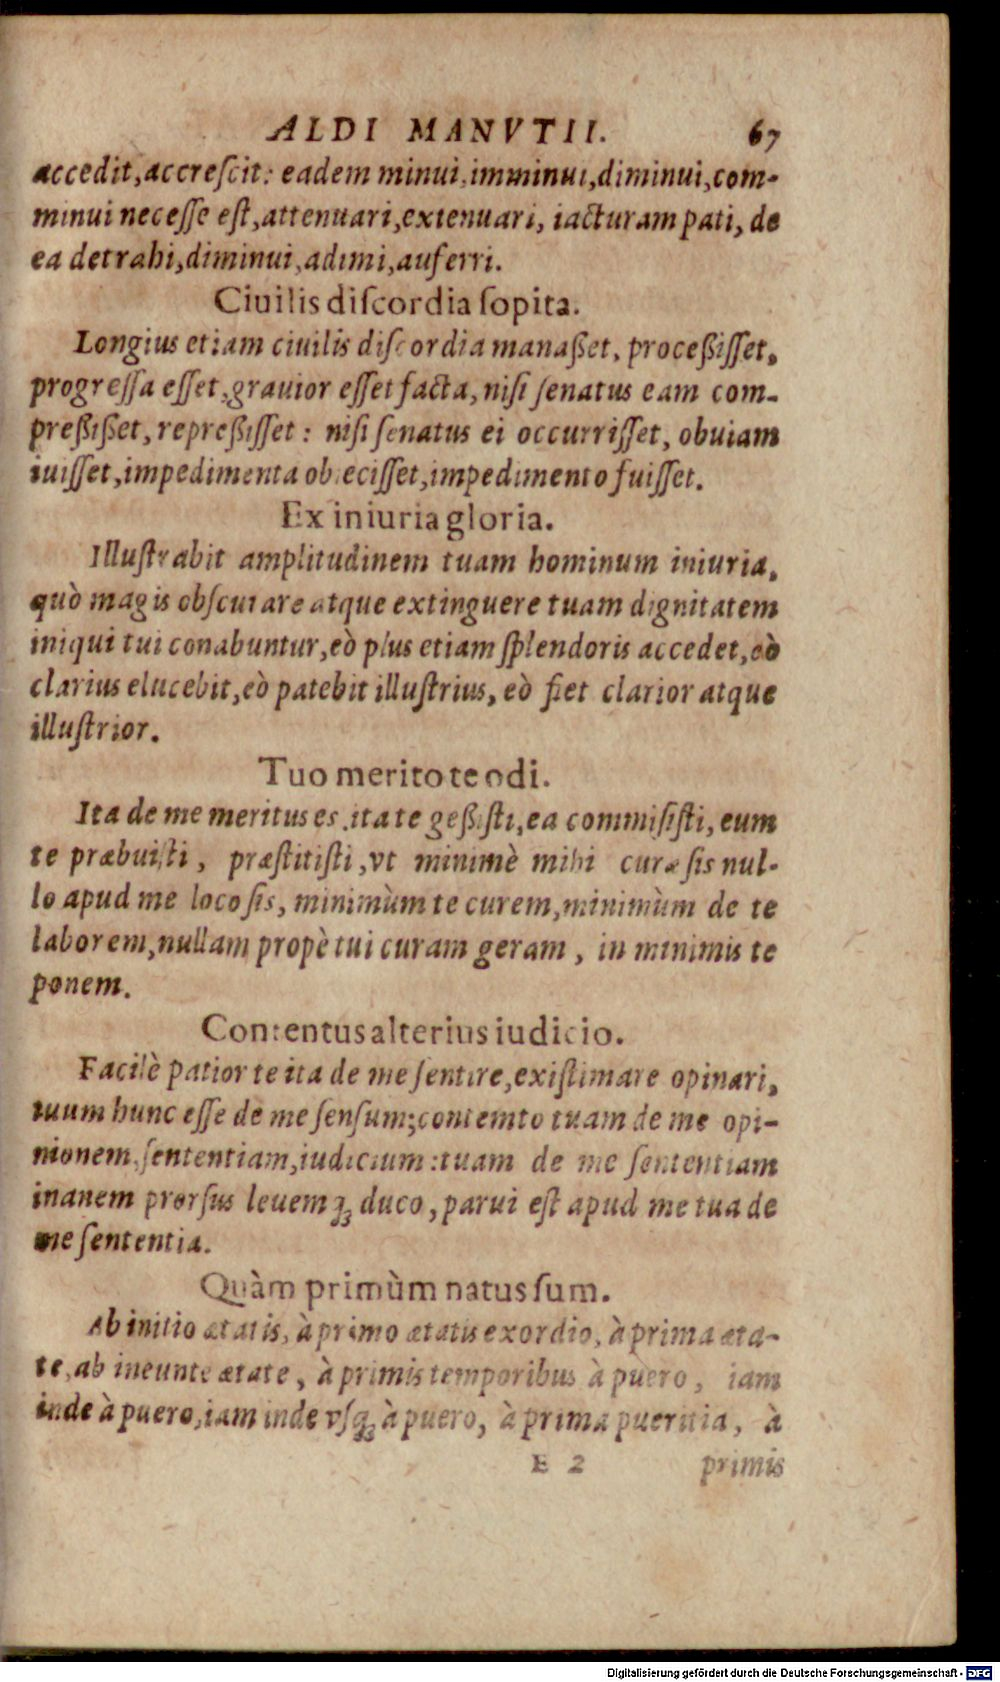 ALDI MANVTII. 67
accedit,accreſcit: eadem minui,imminui,diminui,com-
minui neceſſe eſt,attenuari,extenuari, iacturam pati, de
ea detrahi,diminui,adimi,auferri.
Ciuilis diſcordia ſopita.
Longius etiam ciuilis diſcordia manaßet, proceßiſſet,
progreſſa eſſet,grauior eſſet facta, niſi ſenatus eam com-
preßißet, repreßiſſet: niſi ſenatus ei occurriſſet, obuiam
iuiſſet,impedimenta obieciſſet,impedimento fuiſſet.
Ex iniuria gloria.
Illuſtrabit amplitudinem tuam hominum iniuria,
quò magis obſcurare atque extinguere tuam dignitatem
iniqui tui conabuntur,eò plus etiam ſplendoris accedet,eò
clarius elucebit,eò patebit illuſtrius, eò fiet clarior atque
illuſtrior.
Tuo merito te odi.
Ita de me meritus es,ita te geßiſti,ea commiſiſti, eum
te præbuiſti, præſtitiſti,vt minimè mihi curæ ſis nul-
lo apud me loco ſis, minimùm te curem,minimùm de te
laborem,nullam propè tui curam geram, in minimis te
ponem.
Contentus alterius iudicio.
Facilè patior te ita de me ſentire,exiſtimare opinari,
tuum hunc eſſe de me ſenſum;contemto tuam de me opi-
nionem,ſententiam,iudicium:tuam de me ſententiam
inanem prorſus leuemq́; duco, parui eſt apud me tua de
me ſententia.
Quàm primùm natus ſum.
Ab initio ætatis, à primo ætatis exordio, à prima æta-
te,ab ineunte ætate, à primis temporibus à puero, iam
inde à puero,iam inde vſq́; à puero, à prima pueritia, à
E 2 primis
Digitalisierung gefördert durch die Deutsche Forschungsgemeinschaft - DFG